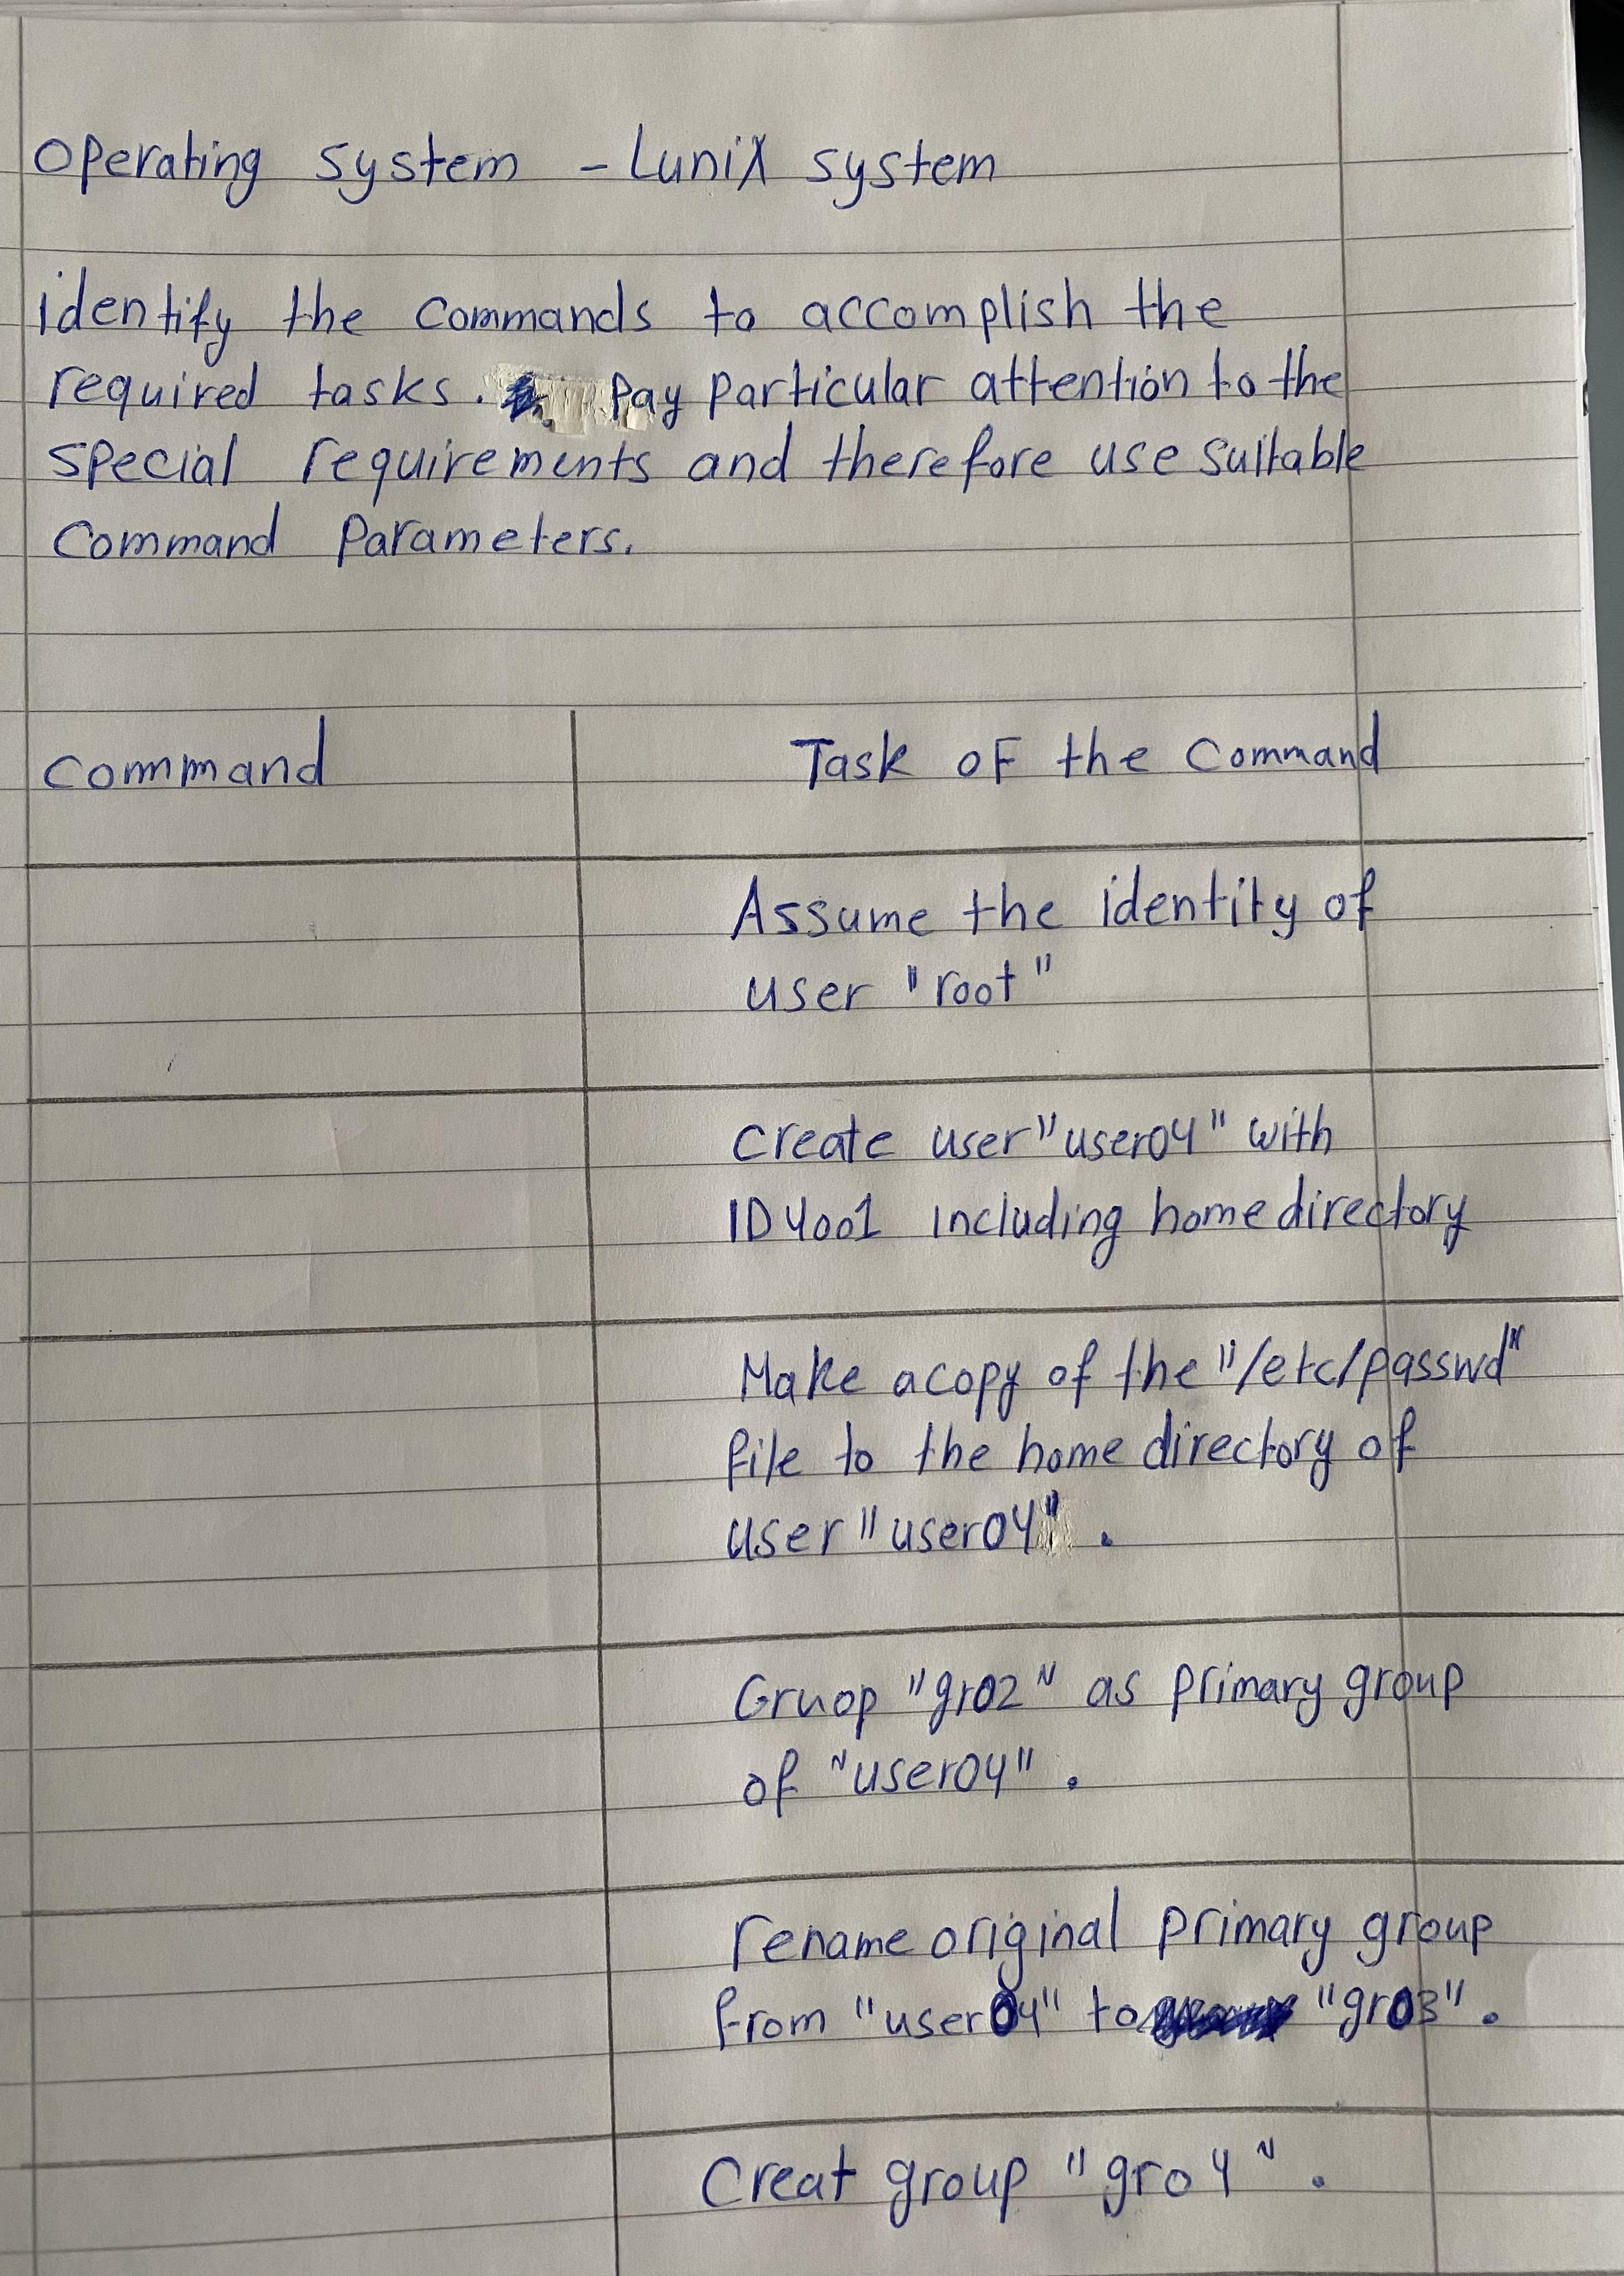 Operating system - Lunix system
identify the commands to accomplish the
required tasks. Pay particular attention to the
special requirements and therefore use suitable
Command Parameters.
Command Task of the Command
Assume the identity of
user "root"
create user "user04" with
ID 4001 including home directory
Make a copy of the "/etc/passwd"
file to the home directory of
user "user04".
Gruop "gr02" as primary group
of "user04".
rename original primary group
from "user04" to "gr03".
Creat group "gr04".